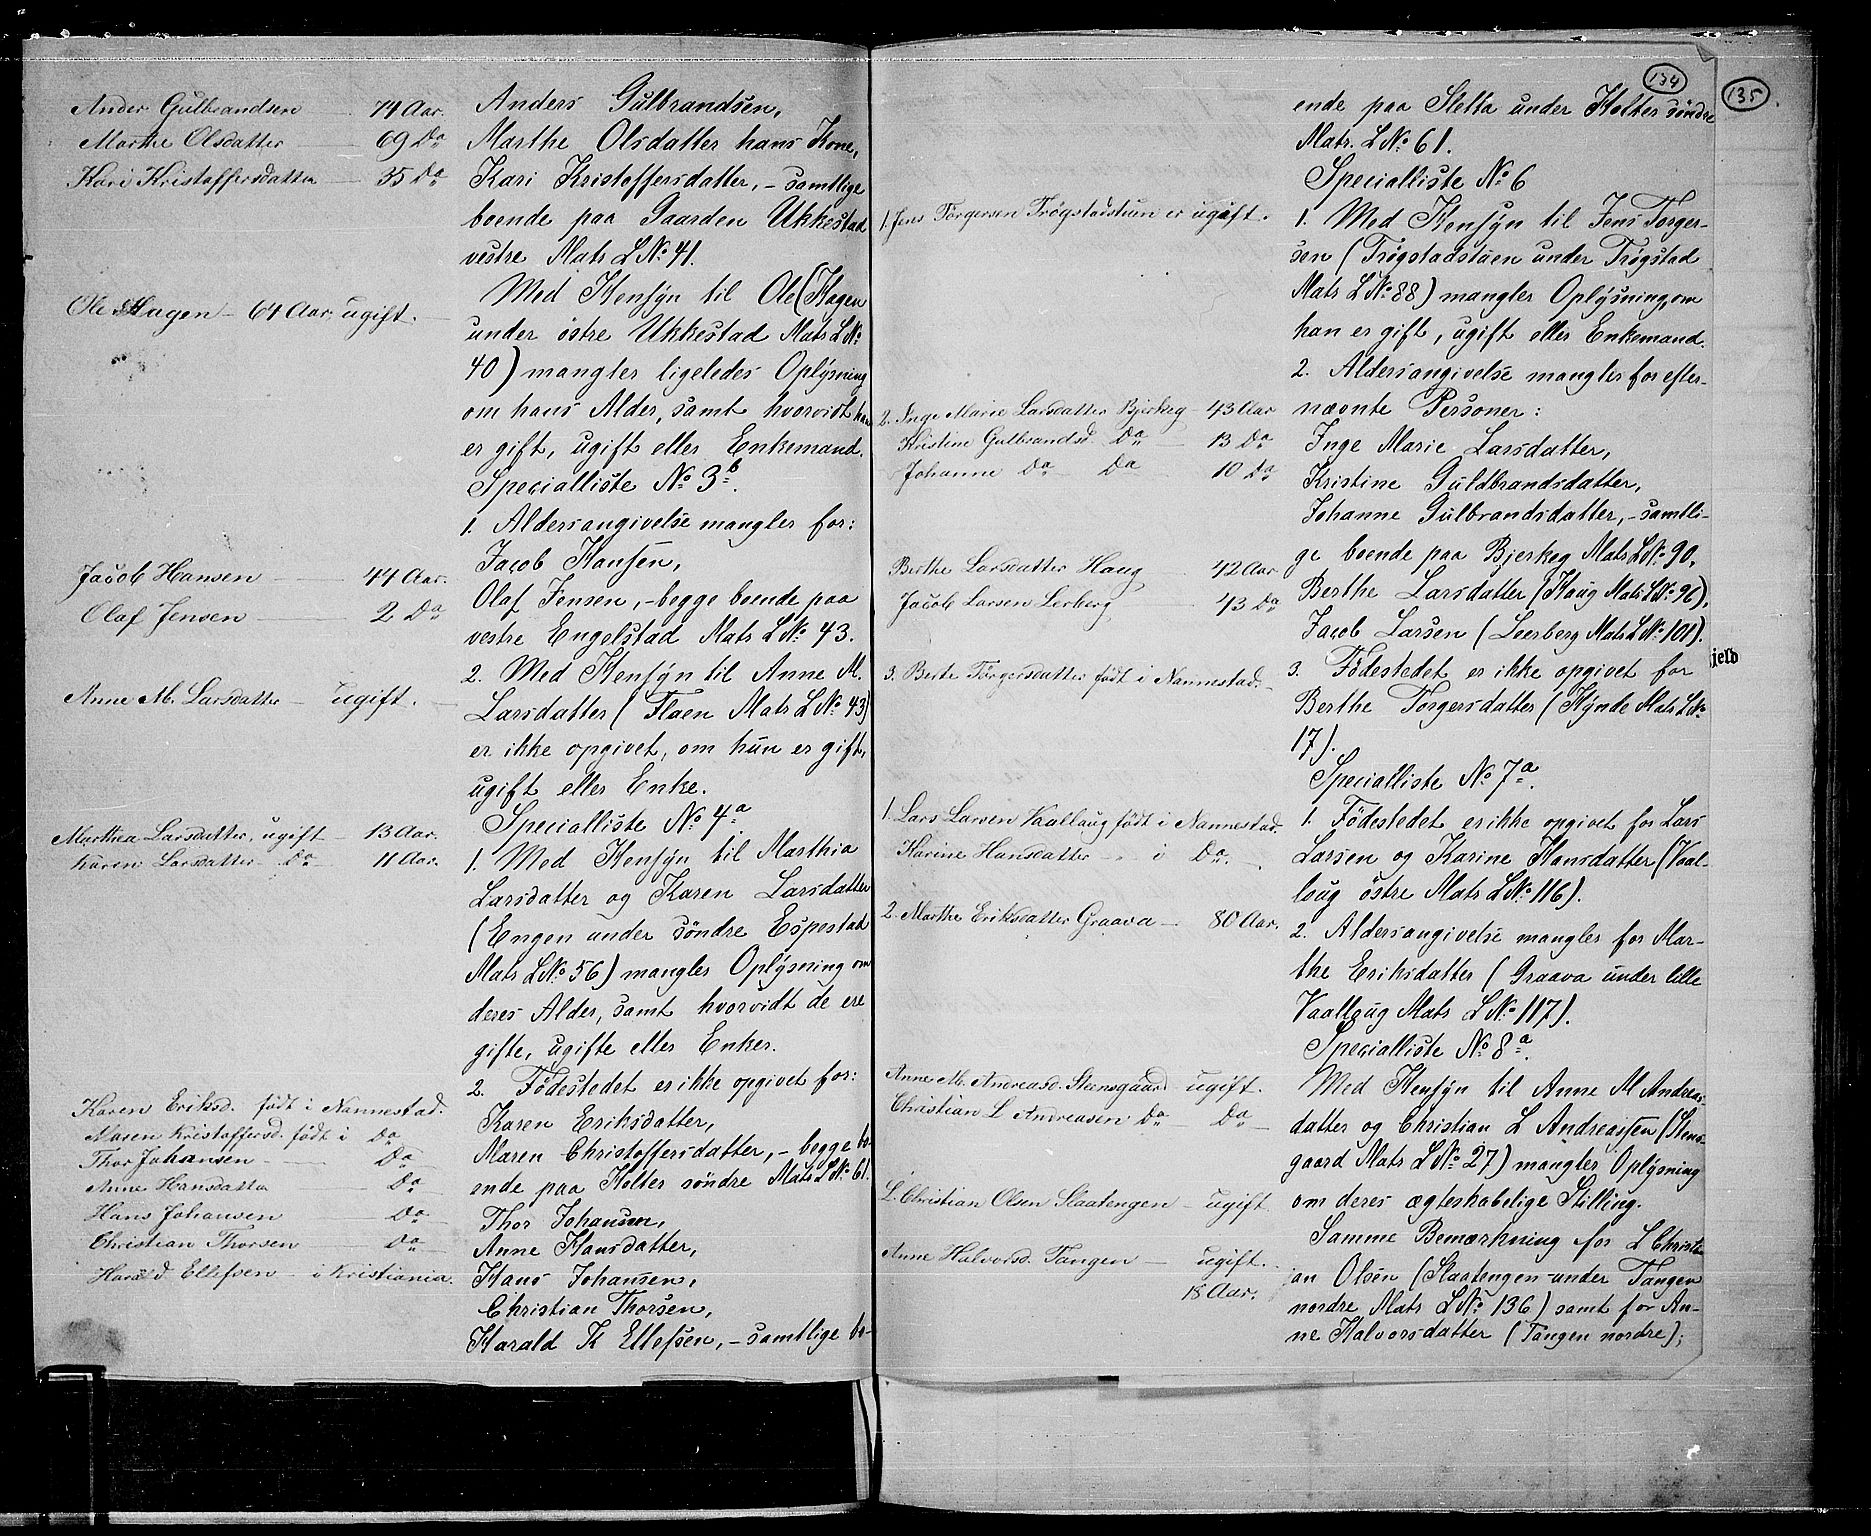 Ander Gulbrandsen — 74 Aar.
Marthe Olsdatter — 69 Do
Kari Kristoffersdatter — 35 Do
Ole Hagen – 64 Aar, ugift.
Jacob Hansen — 44 Aar.
Olaf Jensen — 2 Do
Anne M. Larsdatter – ugift.
Marthea Larsdatter, ugift – 13 Aar.
Karen Larsdatter Do 11 Aar.
Karen Eriksd. født i Nannestad.
Maren Kristoffersd. født i Do
Thor Johansen — Do
Anne Hansdatter Do
Hans Johansen — Do
Christian Thorsen — Do
Harald Ellefsen – i Kristiania.
Anders Gulbrandsen,
Marthe Olsdatter hans Kone,
Kari Kristoffersdatter, – samtlige
boende paa Gaarden Ukkestad
vestre Mats LNo 41.
Med Hensyn til Ole (Hagen
under östre Ukkestad Mats LNo
40) mangler ligeledes Oplysning
om hans Alder, samt hvorvidt han
er gift, ugift eller Enkemand.
Specialliste No 3b.
1. Aldersangivelse mangler for:
Jacob Hansen,
Olaf Jensen, – begge boende paa
vestre Engelstad Mats LNo 43.
2. Med Hensyn til Anne M.
Larsdatter (Flaen Mats LNo 43)
er ikke opgivet, om hun er gift,
ugift eller Enke.
Specialliste No 4a
1. Med Hensyn til Marthia
Larsdatter og Karen Larsdatter
(Engen under söndre Espestad
Mats LNo 56) mangler Oplysning om
deres Alder, samt hvorvidt de ere
gifte, ugifte eller Enker.
2. Födestedet er ikke opgivet for:
Karen Eriksdatter,
Maren Christoffersdatter, – begge bo-
ende paa Holter söndre Mats LNo 61.
Thor Johansen,
Anne Hansdatter,
Hans Johansen,
Christian Thorsen,
Harald K Ellefsen, – samtlige bo-
134
135
1. Jens Torgersen Trøgstadstuen er ugift.
2. Inge Marie Larsdatter Bjerkeg – 43 Aar
Kristine Gulbrandsd. Do 13 Do
Johanne Do Do 10 Do
Berthe Larsdatter Haug — 42 Aar
Jacob Larsen Lerberg — 43 Do
3. Berte Torgersdatter født i Nannestad.
1. Lars Larsen Vaallaug født i Nannestad.
Karine Hansdatter — i Do.
2. Marthe Eriksdatter Graava — 80 Aar.
Anne M. Andreasd. Stensgaard – ugift.
Christian L Andreasen Do Do
L. Christian Olsen Slaatengen – ugift
Anne Halvorsd. Tangen — ugift.
18 Aar.
ende paa Sletta under Holter söndre
Matr. LNo 61.
Specialliste No 6
1. Med Hensyn til Jens Torger-
sen (Trögstadstuen under Trögstad
Mats LNo 88) mangler Oplysning, om
han er gift, ugift eller Enkemand.
2. Aldersangivelse mangler for efter-
nævnte Personer:
Inge Marie Larsdatter,
Kristine Guldbrandsdatter,
Johanne Gulbrandsdatter, – samtli-
ge boende paa Bjerkeg Mats LNo 90,
Berthe Larsdatter (Haug Mats LNo 96),
Jacob Larsen (Leerberg Mats LNo 101).
3. Födestedet er ikke opgivet for
Berthe Torgersdatter (Hynde Mats LNo
17).
Specialliste No 7a.
1. Födestedet er ikke opgivet for Lars
Larsen og Karine Hansdatter (Vaal-
laug östre Mats LNo 116).
2. Aldersangivelse mangler for Mar-
the Eriksdatter (Graava under lille
Vaallaug Mats LNo 117).
Specialliste No 8a.
Med Hensyn til Anne M Andreas-
datter og Christian L Andreassen (Stens-
gaard Mats LNo 27) mangler Oplysning
om deres ægteskabelige Stilling.
Samme Bemærkning for L Christi-
an Olsen (Slaatengen under Tangen
nordre Mats LNo 136) samt for An-
ne Halvorsdatter (Tangen nordre);
jeld